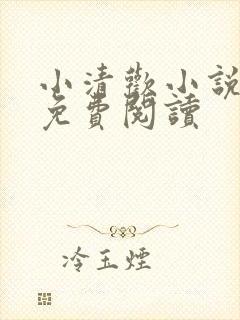 小清歡小說
免費閱讀
冷玉煙